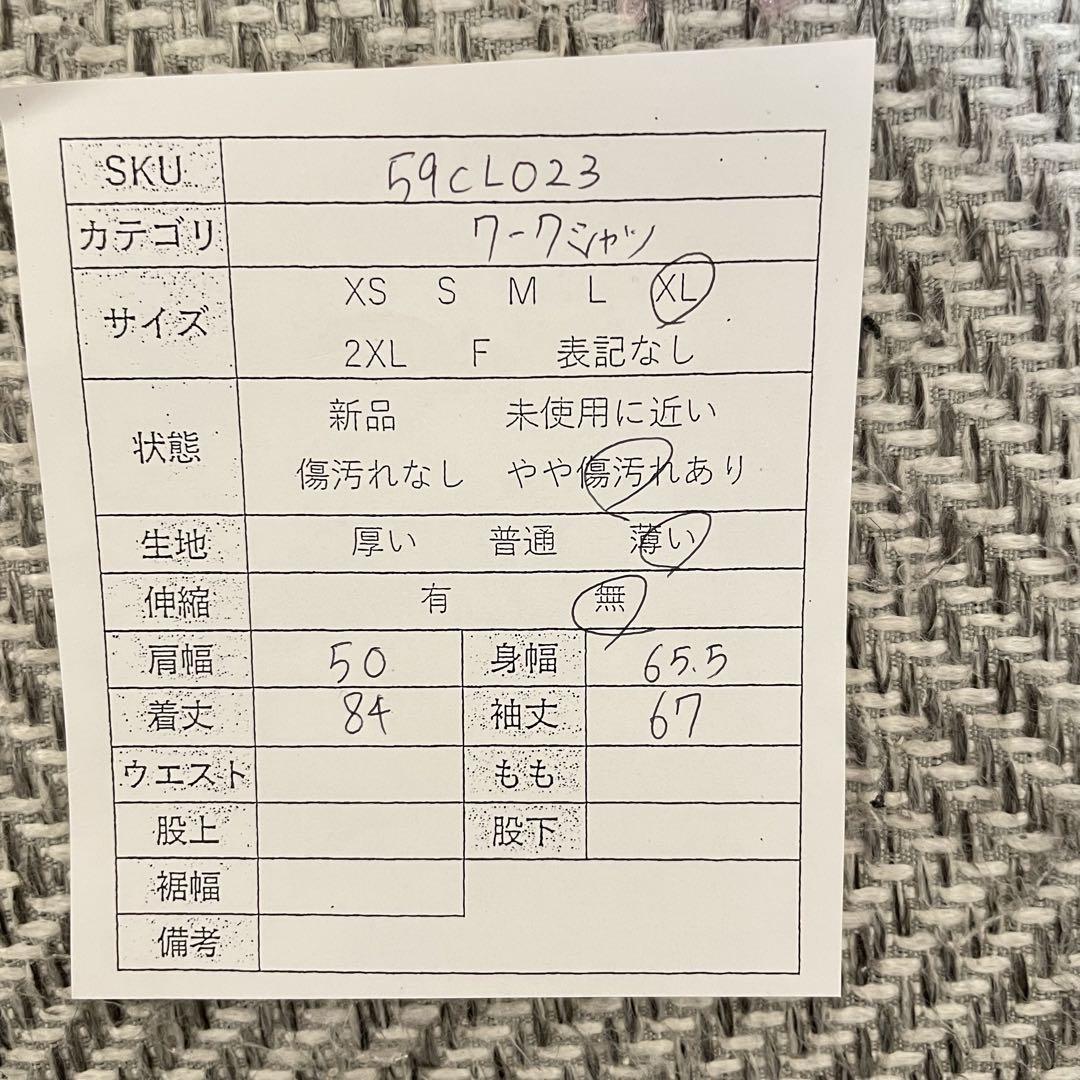 SKU 59CL023
カテゴリ ワークシャツ
サイズ XS S M L XL
2XL F 表記なし
状態 新品 未使用に近い
傷汚れなし やや傷汚れあり
生地 厚い 普通 薄い
伸縮 有 無
肩幅 50 身幅 65.5
着丈 84 袖丈 67
ウエスト もも
股上 股下
裾幅
備考